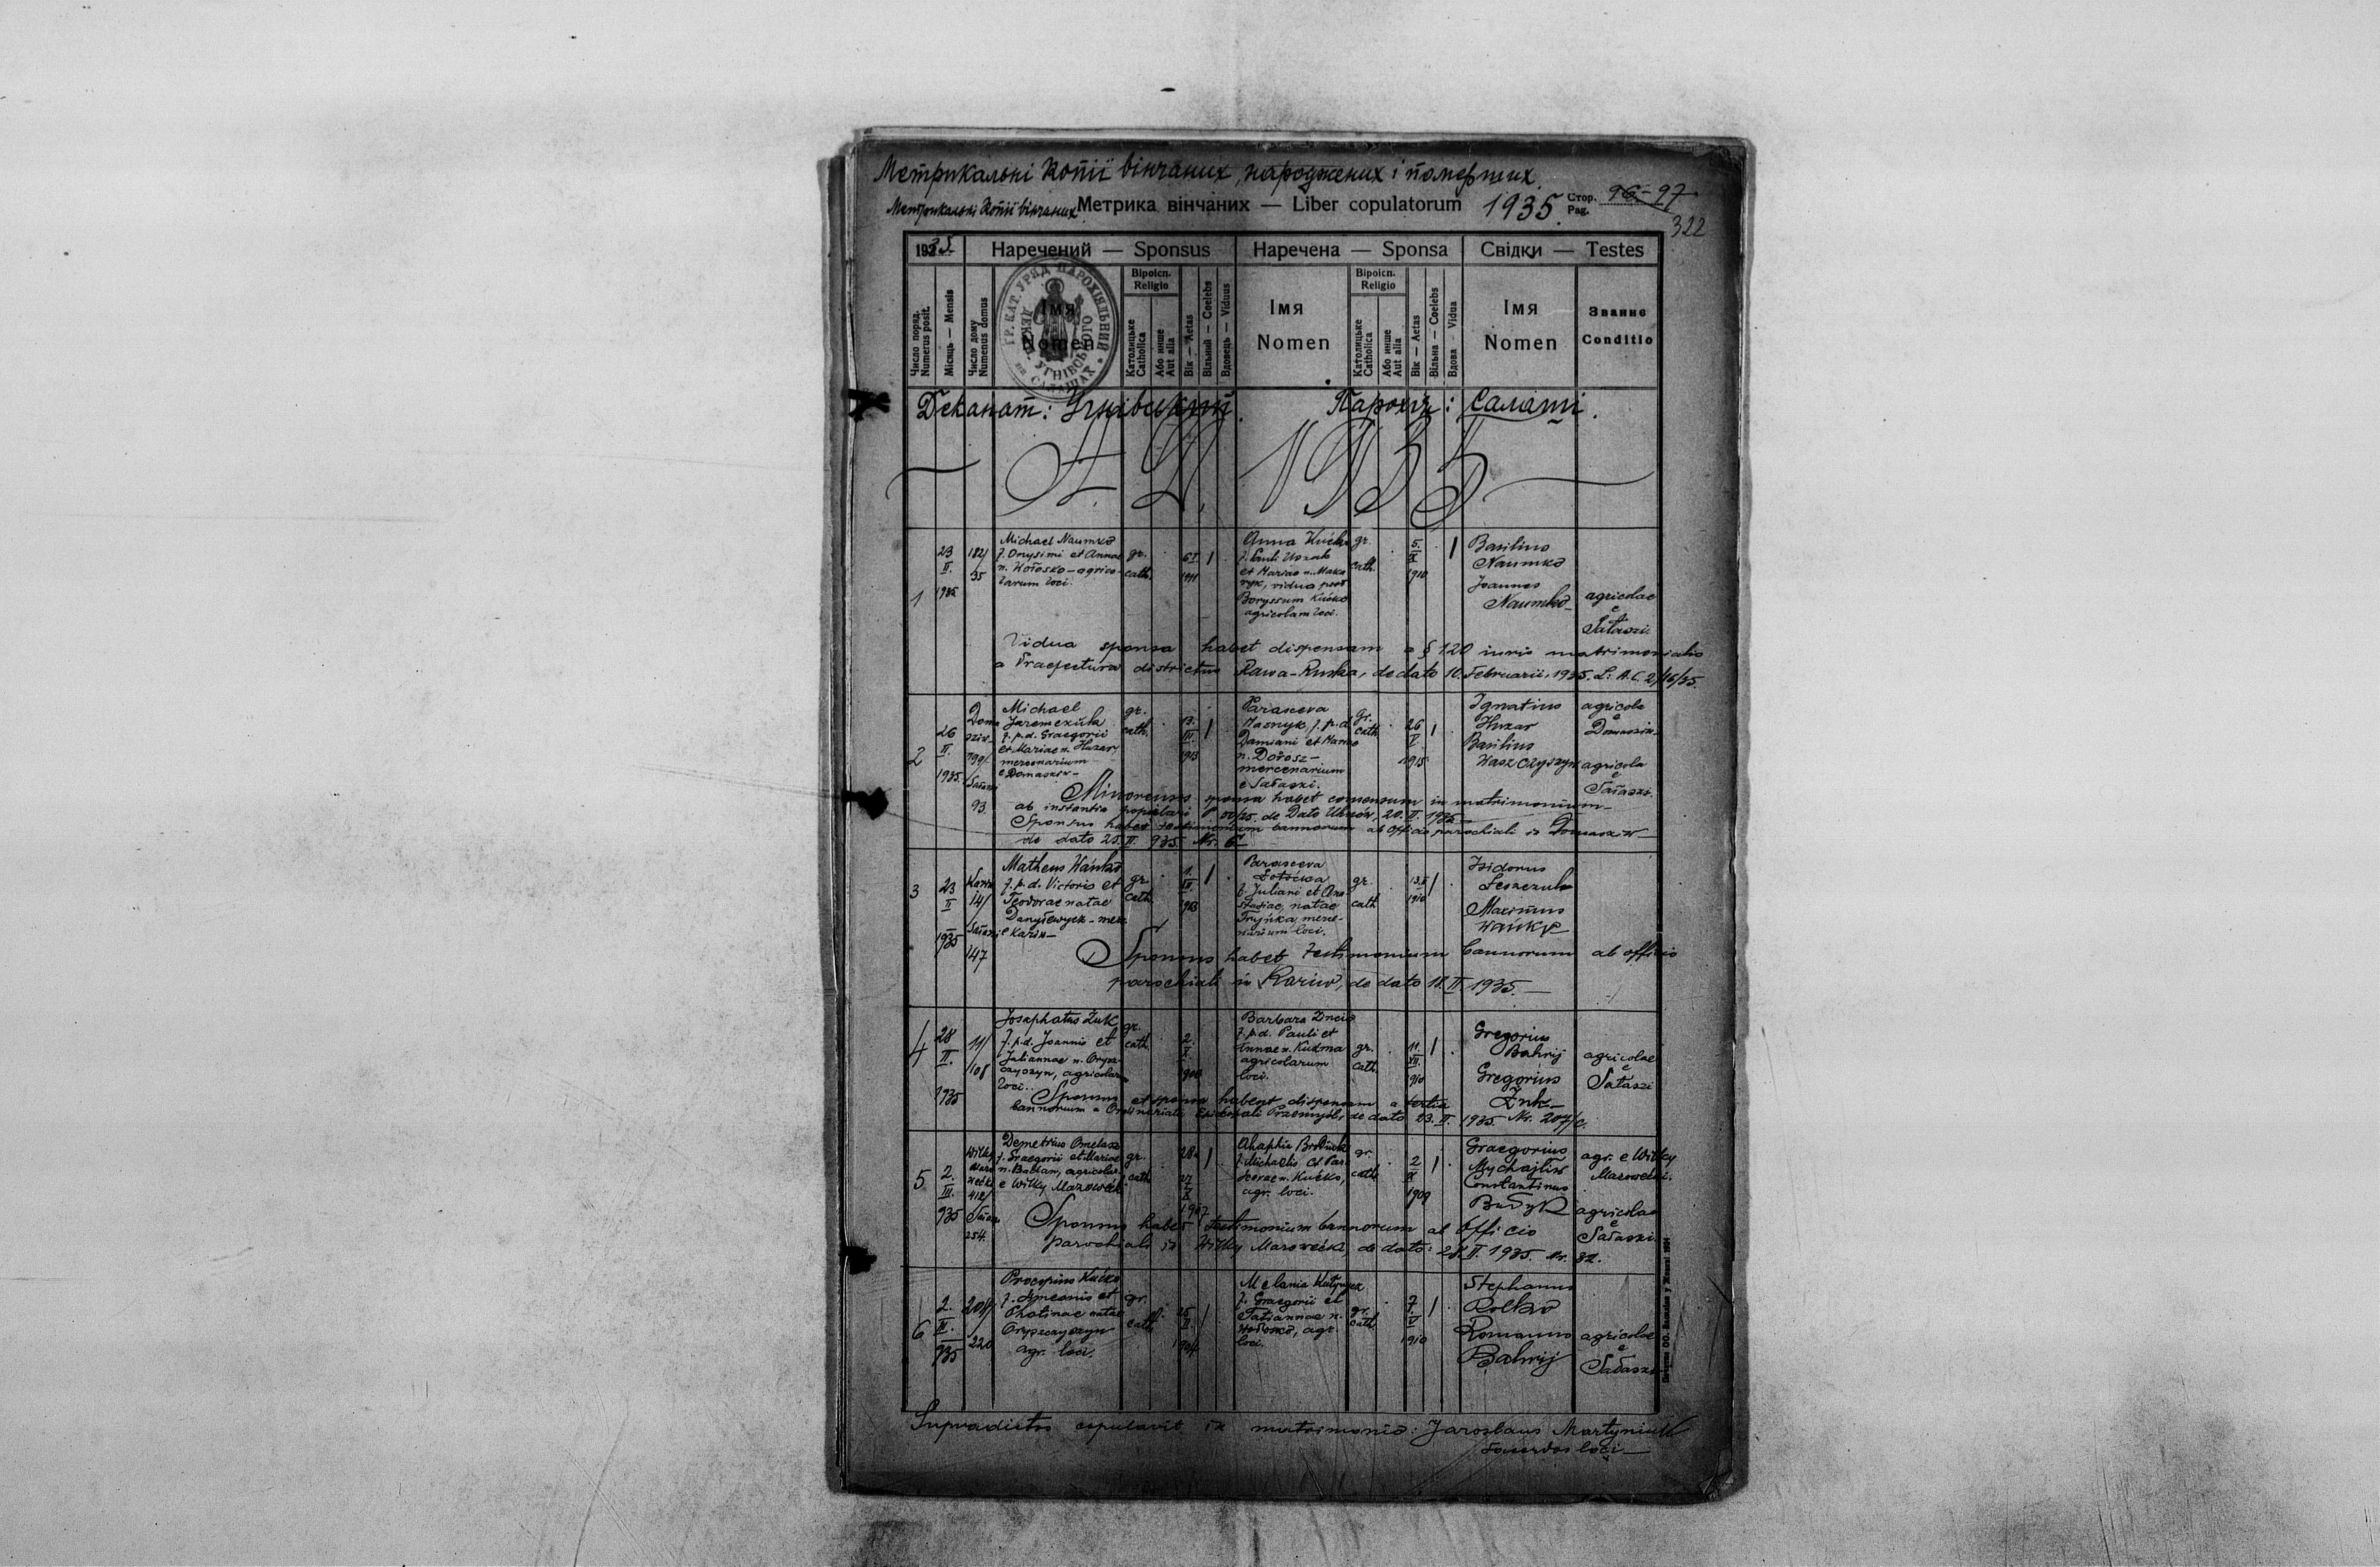 Метрикальні копії вінчаних, народжених і померших.
Метрикальні копії вінчаних Метрика вінчаних — Liber copulatorum 1935 Стор. Pag. 96-97
322
1935 Наречений — Sponsus Наречена — Sponsa Свідки — Testes
Число поряд. Numerus posit.
Місяць — Mensis
Число дому Numerus domus
Імя Nomen
Віроісп. Religio
Католицьке Catholica
Або инше Aut alia
Вік — Aetas
Вільний — Coelebs
Вдовець — Viduus
Імя Nomen
Віроісп. Religio
Католицьке Catholica
Або инше Aut alia
Вік — Aetas
Вільна — Coelebs
Вдова — Vidua
Імя Nomen
Званнє Conditio
ГР. КАТ. УРЯД ПАРОХІЯЛЬНИЙ
Деканат: Угнівський. Парохія: Салаші.
A. D. 1935
1
23 II. 1935
182/ 35
Michael Naumko
f. Onysimi et Annae
n. Wołosko – agrico-
larum loci.
gr. cath.
6 I 1911
Anna Kućko
f. Pauli
et Mariae n.
vidua post
Boryssum Kućko
agricolam loci.
gr. cath.
5. IX 1910
Basilius
Naumko
Joannes
Naumko
agricolae
e
Sałaszi
Vidua sponsa habet dispensam a § 120 iuris matrimonialis
a Praefectura districtus Rawa-Ruska, de dato 10. Februarii, 1935. L: A.C. 2/16/35.
2
26 II. 1935.
Domasziw 199/ Sałaszi 93.
Michael
Jaremczuk
f. p. d. Graegorii
et Mariae n. Huzar
mercenarium
e Domasziw –
gr. cath.
13. III. 1913
Parasceva
Masnyk, f. p. d.
Damiani et Mariae
n. Dołosz –
mercenarium
e Sałaszi.
gr. cath.
26 V. 1915
Ignatius
Huzar
Basilius
Waszczyszyn
agricola
e
Domasziw
agricola
e
Sałaszi.
Minorennis sponsa habet consensum in matrimonium –
ab instantia de dato Uhnów, 20. II. 1935 –
Sponsus habet testimonium bannorum ab officio parochiali in Domasziw –
de dato 25. II. 935 Nr. 6 –
3
23 II 1935
Kariw 14/ Sałaszi 147
Matheus Wańko
f. p. d. Victoris et
Teodorae natae
Danyłewycz – mer.
e Kariw –
gr. cath.
1. III. 1913
Parasceva
f. Juliani et Ana-
stasiae, natae
Tryńka, merce-
narium loci.
gr. cath.
13. X 1910
Isidorus
Leszczuk
Maximus
Wańko
Sponsus habet testimonium bannorum ab officio
parochiali in Kariw, de dato 18. II 1935. –
4
28 II. 1935
11/ 108
Josaphatus Żuk
f. p. d. Joannis et
Juliannae n. Orysz-
czyszyn, agricolarum
loci.
gr. cath.
2. X.
Barbara
f. p. d. Pauli et
Annae n. Kudma
agricolarum
loci.
gr. cath.
11. XII. 1910
Gregorius
Bahrij
Gregorius
Żuk –
agricolae
e
Sałaszi
Sponsus et sponsa habent dispensam a tertia
bannorum a Ordinariatu Episcopali Przemyśl, de dato 23. II. 1935 Nr. 207/c.
5
2. III. 935
Wilky Mazowecki 412/ Sałaszi 254.
Demetrius Omelasz
f. Graegorii et Mariae
n. Bałdan, agricolar.
e Wilky Mazowecki
gr. cath.
27 X 1907
Ahaphia
f. Michaelis et Par.
n. Kućko,
agr. loci.
gr. cath.
2 X 1909
Graegorius
Mychajłiw
Constantinus
agr. e Wilky
Mazowecki.
agricolae
e
Sałaszi.
Sponsus habet testimonium bannorum ab officio
parochiali in Wilky Mazowecki, de dato: 28. II. 1935. Nr. 32.
6
2. III. 935
204/ 220
Procopius Kućko
f. Symeonis et
Photinae natae
Oryszczyszyn
agr. loci.
gr. cath.
25 II. 1904
Melania
f. Graegorii et
Tatiannae n.
Wołosko, agr.
loci.
gr. cath.
7. V 1910
Stephanus
Rolko
Romanus
Bahrij
agricolae
e
Sałaszi
Supradictos copulavit in matrimonio: Jarosłaus Martyniuk
sacerdos loci –